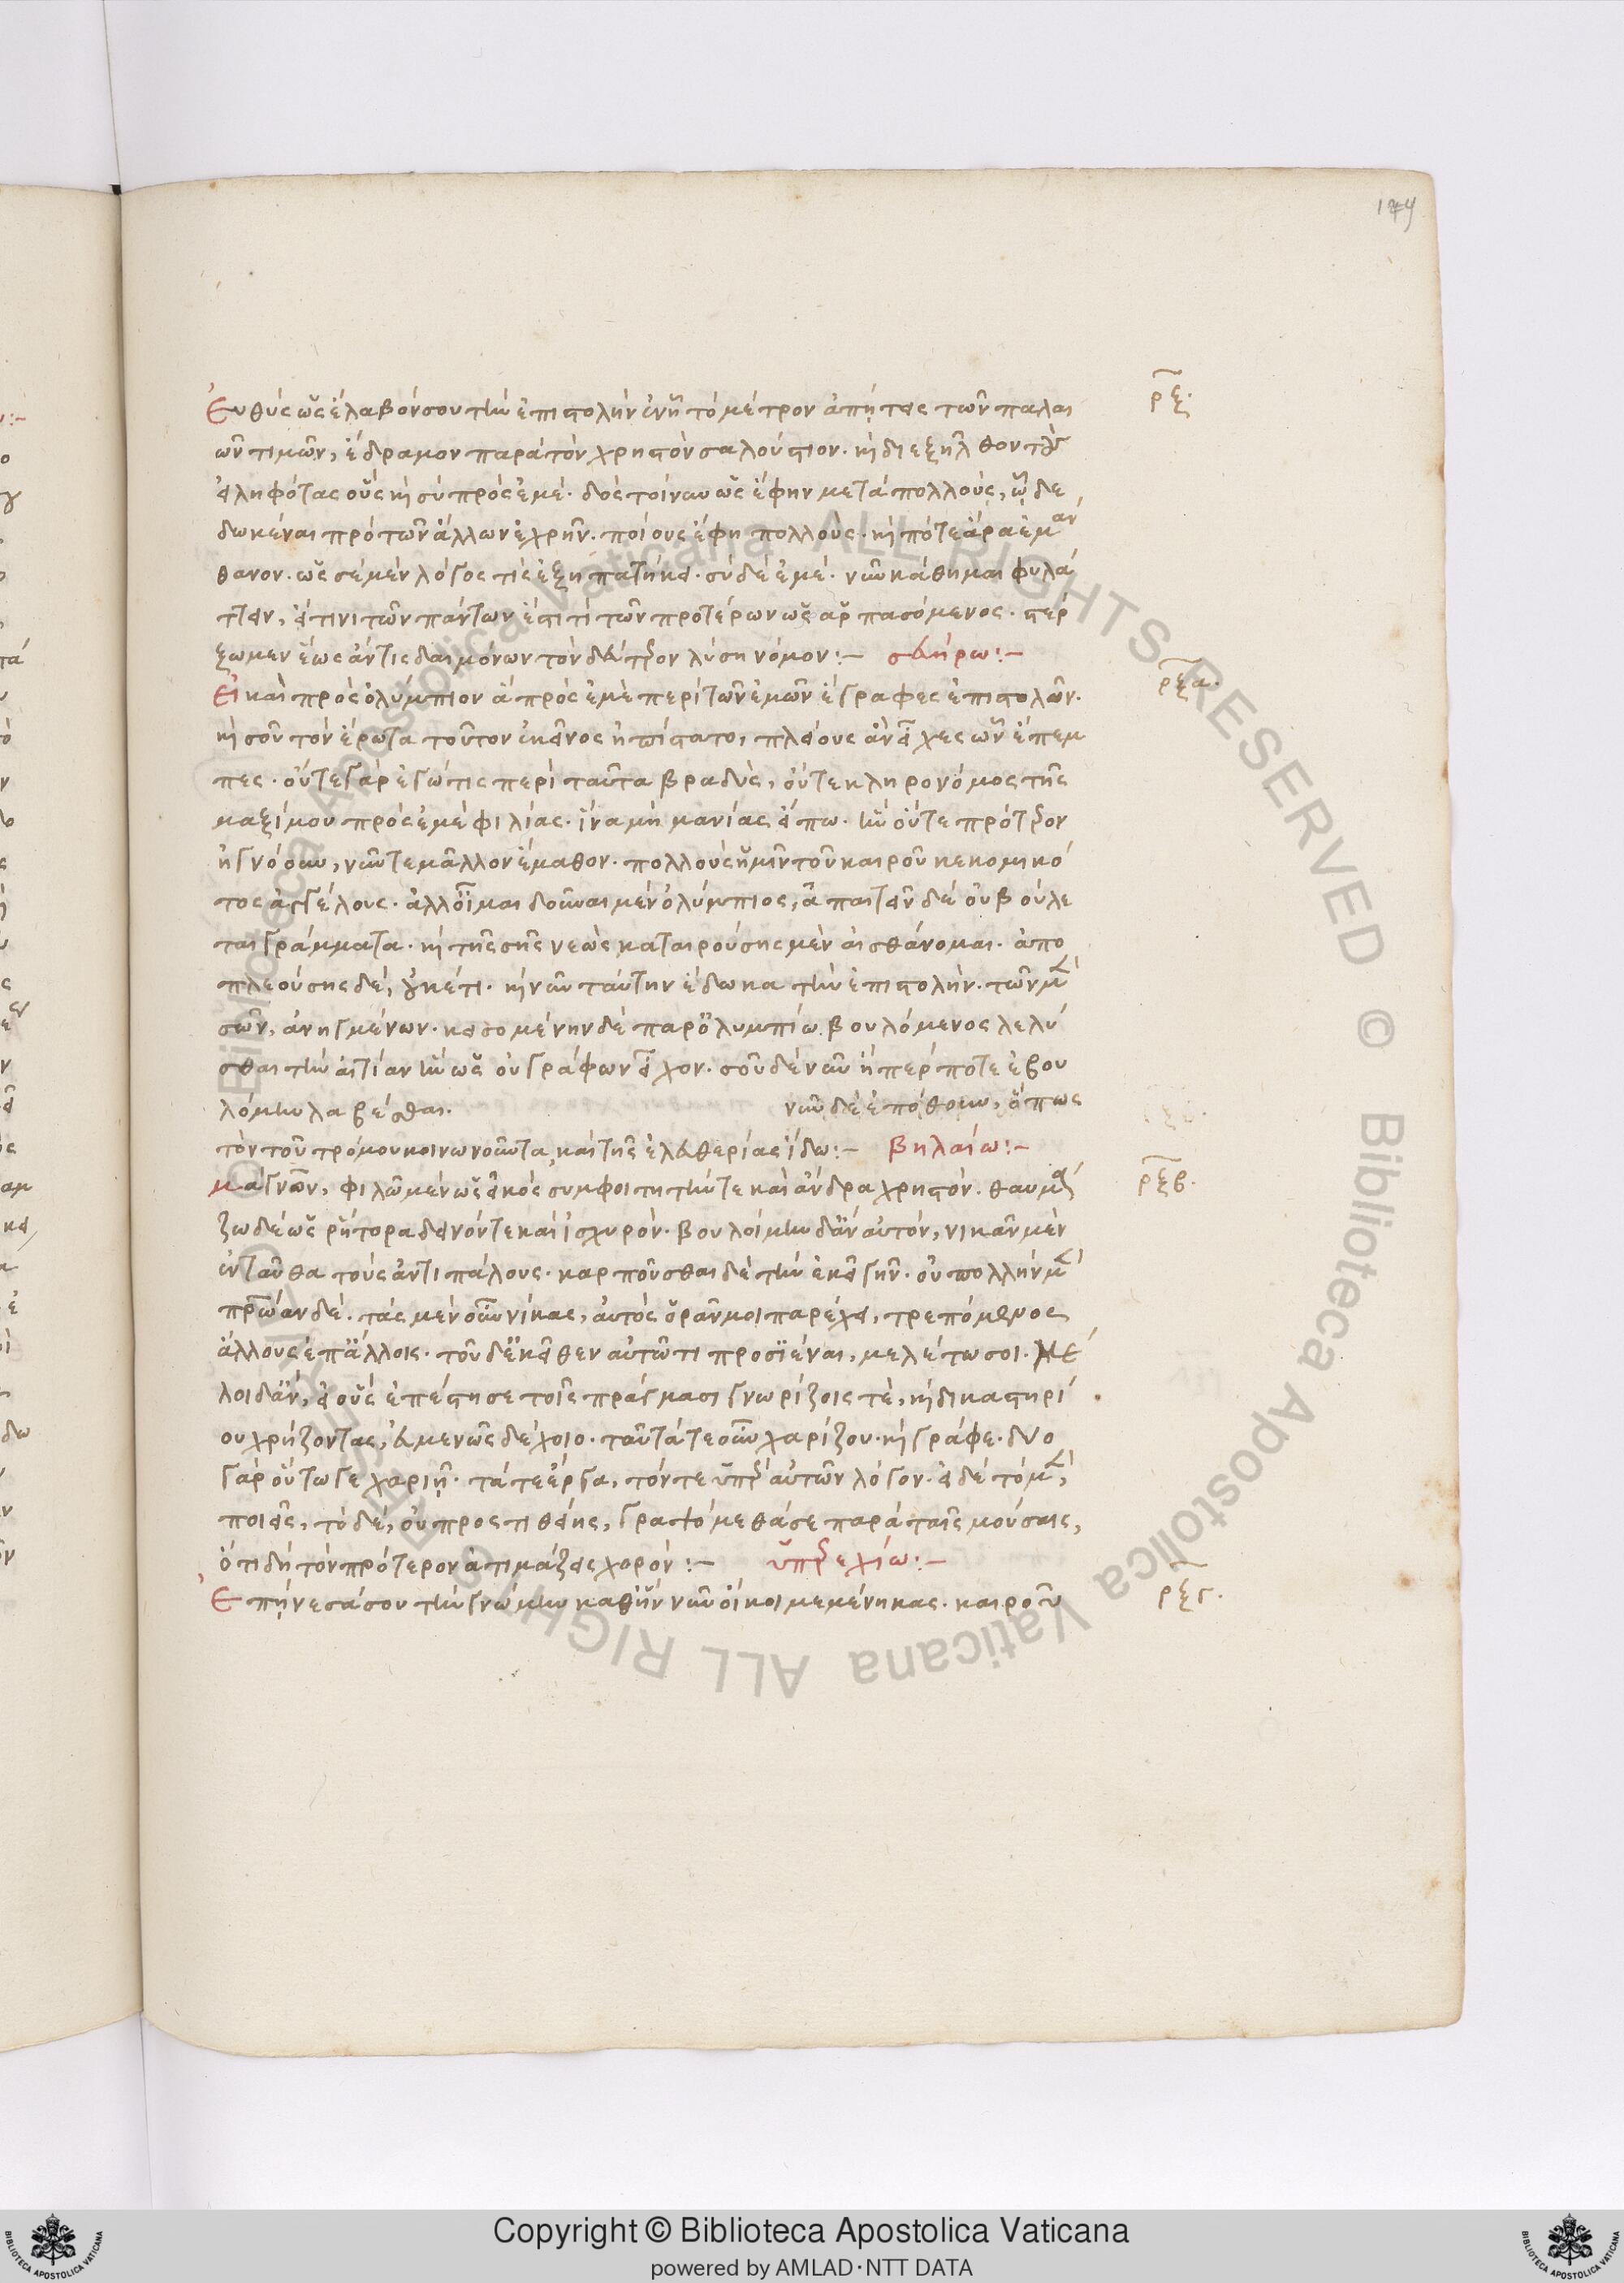 174
Εὐθὺς ὡς ἔλαβόν σου τὴν ἐπιστολὴν ἐν ᾗ τὸ μέτρον ἀπῄτεις τῶν παλαι ρξ.
ῶν τιμῶν, ἔδραμον παρὰ τὸν χρηστὸν σαλούστιον. καὶ διεξῆλθον τοὺς
εἰληφότας οὓς καὶ σὺ πρὸς ἐμέ. δὸς τοίνυν ὡς ἔφην μετὰ πολλοὺς, ᾧ δε
δωκέναι πρὸ τῶν ἄλλων ἐχρῆν. ποίους ἔφη πολλούς. καὶ πότε ἄρα ἐμάν
θανον. ὡς σὲ μὲν λόγος τις ἐξηπάτηκε. σὺ δὲ ἐμέ. νῦν κάθημαι φυλά
ττειν, εἴ τινι τῶν πάντων ἐστί τι τῶν προτέρων ὡς ἁρπασόμενος. στέρ
ξωμεν ἕως ἄν τις δαιμόνων τὸν δεύτερον λύσῃ νόμον:- σευήρω:-
Εἰ καὶ πρὸς ὀλύμπιον ἃ πρὸς ἐμὲ περὶ τῶν ἐμῶν ἔγραφες ἐπιστολῶν. ρξα.
καὶ σοῦ τὸν ἔρωτα τοῦτον ἐκεῖνος ἠπίστατο, πλείους ἂν εἶχες ὧν ἔπεμ
πες. οὔτε γὰρ ἐγώ τις περὶ ταῦτα βραδύς, οὔτε κληρονόμος τῆς
μαξίμου πρὸς ἐμὲ φιλίας. ἵνα μὴ μανίας εἴπω. ἣν οὔτε πρότερον
ἠγνόουν, νῦν τε μᾶλλον ἔμαθον. πολλοὺς ἡμῖν τοῦ καιροῦ κεκομικό
τος ἀγγέλους. ἀλλ' οἶμαι δοῦναι μὲν ὀλύμπιος, ἀπαιτεῖν δὲ οὐ βούλε
ται γράμματα. καὶ τῆς σῆς νεὼς καταιρούσης μὲν αἰσθάνομαι. ἀπο
πλεούσης δέ, οὐκέτι. καὶ νῦν ταύτην ἔδωκα τὴν ἐπιστολήν. τῶν μὲν
σῶν, ἀνηγμένων. κεισομένην δὲ παρ' ὀλυμπίω. βουλόμενος λελύ
σθαι τὴν αἰτίαν ἣν ὡς οὐ γράφων εἶχον. σοῦ δὲ νῦν ἤπερ ποτε ἐβου
λόμην λαβέσθαι. νῦν δὲ ἐπόθουν, ὅπως
τὸν τοῦ τρόμου κοινωνοῦντα, καὶ τῆς ἐλευθερίας ἴδω:- βηλαίω:-
Μάγνον, φιλῶ μὲν ὡς εἰκὸς συμφοιτητήν τε καὶ ἄνδρα χρηστόν. θαυμά ρξβ.
ζω δὲ ὡς ῥήτορα δεινόν τε καὶ ἰσχυρόν. βουλοίμην δ' ἂν αὐτόν, νικᾶν μὲν
ἐνταῦθα τοὺς ἀντιπάλους. καρποῦσθαι δὲ τὴν ἐκεῖ γῆν. οὐ πολλὴν μὲν
πατρώαν δέ. τὰς μὲν οὖν νίκας, αὐτὸς ὁρᾶν μοι παρέχει, τρεπόμενος
ἄλλους ἐπ' ἄλλοις. τοῦ δ' ἐκεῖθεν αὐτῶ τι προσιέναι, μελέτω σοι. μέ
λοι δ' ἄν, εἰ οὓς ἐπέστησε τοῖς πράγμασι γνωρίζοις τὲ, καὶ δικαστηρί
ου χρήζοντας, εὐμενῶς δέχοιο. ταῦτά τε οὖν χαρίζου. καὶ γράφε. δύο
γὰρ οὕτω γε χαριῇ. τά τε ἔργα, τόν τε ὑπὲρ αὐτῶν λόγον. εἰ δὲ τὸ μὲν,
ποιεῖς, τὸ δέ, οὐ προστιθείης, γραψόμεθά σε παρὰ ταῖς μούσαις,
ὅτι δὴ τὸν πρότερον ἀτιμάζεις χορόν:- ὑπερεχίω:-
Ἐπῄνεσά σου τὴν γνώμην καθ' ἣν νῦν οἴκοι μεμένηκας. καιροῦ ρξγ.
Copyright © Biblioteca Apostolica Vaticana
powered by AMLAD·NTT DATA